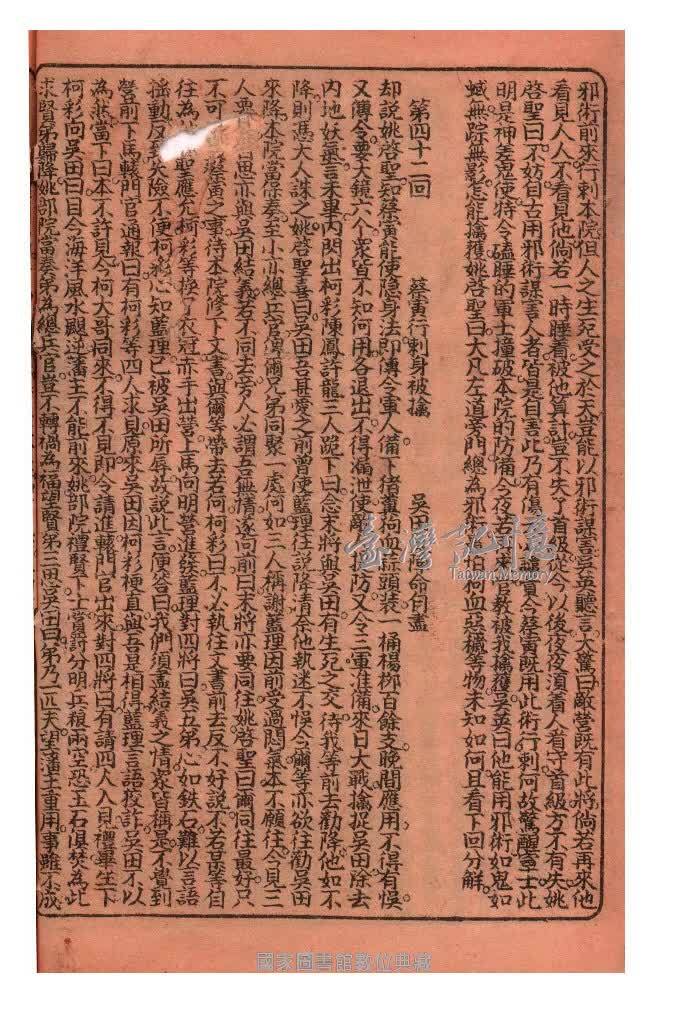 邪術前來行刺本院但人之生死受之於天豈能以邪術謀害吳英聽言大驚曰敵營既有此將倘若再來他
看見人人不看見他倘若一時睡着被他算計豈不失了首級從今以後夜夜須看人看守首級方不有失姚
啓聖曰不妨自古用邪術謀害人者皆是自害此乃有傷 蔡寅今蔡寅既用此術行刺何故驚醒軍士此
明是神差鬼使特令磕睡的軍士撞破本院的防備今夜若 來管教被我擒獲吳英曰他能用邪術如鬼如
蜮無踪無影怎能擒獲姚啓聖曰大凡左道旁門總為邪 怕狗血惡穢等物未知如何且看下回分解
第四十二回 蔡寅行刺身被擒 吳田 陰命自盡
却說姚啓聖知蔡寅能使隐身法即傳令軍人備下猪糞狗血綠頭裝一桶楊柳百餘支晚間應用不得有悞
又傳令要大鏡六八个眾皆不知何用各退出不得漏泄使敵 防又令三軍准備來日大戰擒捉吳田除去
内地妖氣言未畢内閃出柯彩陳鳳許龍三人跪下曰念末將與吳田有生死之交待我等前去勸降他如不
降則馮大人誅之姚啓聖喜曰吳田吾甚愛之前曾使藍理往說降情奈他執迷不悞今爾等亦欲往勸吳田
來降本院當保奏至小亦總兵官俾爾兄弟同聚一處何如三人稱謝藍理因前受過悶氣本不願往今見三
人要 思亦與吳田結義若不同去旁人必謂吾無情遂向前曰末將亦要同往姚啓聖曰爾同往最好只
不可 蔡寅之事待本院修下文書與爾等帶去若何柯彩曰不必執往文書前去反不好說不若某等自
往為 聖應允柯彩等換了衣冠亦手出營上馬向明營進發藍理對四將曰吳五弟心如鉄石難以言語
搖動反 失險不便柯彩心知藍理已被吳田所辱故說此言便答曰我們須盡結義之情眾皆稱是不覺到
營前下馬轅門官通報曰有柯彩等四人求見原來吳田因柯彩梗直與吾最相得藍理言語狡詐吳田不以
為然當下曰本不許見今柯大哥同來不得不見即令請進轅門官出來對四將曰有請四人入見禮畢坐下
柯彩向吳田曰目今海洋風水飃逆藩主不能前來姚部院禮賢下士賞罰分明兵粮兩空恐玉石俱焚為此
求賢弟歸降姚部院當奏弟為總兵官豈不轉禍為福望賢弟三思吳田曰弟乃一匹夫望藩主重用事雖不成
臺灣記憶
Taiwan Memory
國家圖書館數位典藏